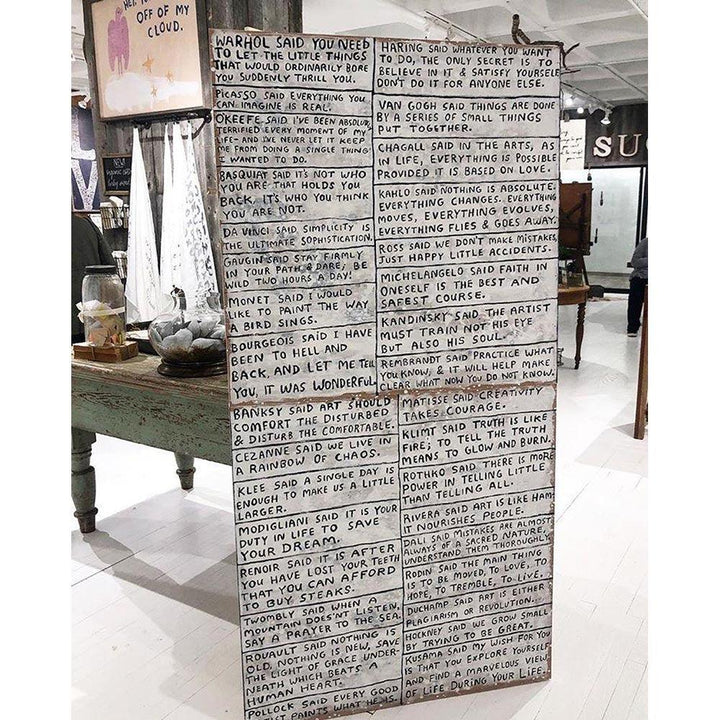 OFF OF MY
CLOUD.
NEW
SU
WARHOL SAID YOU NEED
TO LET THE LITTLE THINGS
THAT WOULD ORDINARILY BORE
YOU SUDDENLY THRILL YOU.
PICASSO SAID EVERYTHING YOU
CAN IMAGINE IS REAL.
OKEEFE SAID I'VE BEEN ABSOLUTELY
TERRIFIED EVERY MOMENT OF MY
LIFE- AND I'VE NEVER LET IT KEEP
ME FROM DOING A SINGLE THING
I WANTED TO DO.
BASQUIAT SAID IT'S NOT WHO
YOU ARE THAT HOLDS YOU
BACK, IT'S WHO YOU THINK
YOU ARE NOT.
DA VINCI SAID SIMPLICITY IS
THE ULTIMATE SOPHISTICATION.
GAUGIN SAID STAY FIRMLY
IN YOUR PATH & DARE; BE
WILD TWO HOURS A DAY!
MONET SAID I WOULD
LIKE TO PAINT THE WAY
A BIRD SINGS.
BOURGEOIS SAID I HAVE
BEEN TO HELL AND
BACK, AND LET ME TELL
YOU, IT WAS WONDERFUL.
HARING SAID WHATEVER YOU WANT
TO DO, THE ONLY SECRET IS TO
BELIEVE IN IT & SATISFY YOURSELF
DON'T DO IT FOR ANYONE ELSE.
VAN GOGH SAID THINGS ARE DONE
BY A SERIES OF SMALL THINGS
PUT TOGETHER.
CHAGALL SAID IN THE ARTS, AS
IN LIFE, EVERYTHING IS POSSIBLE
PROVIDED IT IS BASED ON LOVE.
KAHLO SAID NOTHING IS ABSOLUTE.
EVERYTHING CHANGES. EVERYTHING
MOVES, EVERYTHING EVOLVES,
EVERYTHING FLIES & GOES AWAY.
ROSS SAID WE DON'T MAKE MISTAKES,
JUST HAPPY LITTLE ACCIDENTS.
MICHELANGELO SAID FAITH IN
ONESELF IS THE BEST AND
SAFEST COURSE.
KANDINSKY SAID THE ARTIST
MUST TRAIN NOT HIS EYE
BUT ALSO HIS SOUL.
REMBRANDT SAID PRACTICE WHAT
YOU KNOW, & IT WILL HELP MAKE
CLEAR WHAT NOW YOU DO NOT KNOW.
BANKSY SAID ART SHOULD
COMFORT THE DISTURBED
& DISTURB THE COMFORTABLE.
CEZANNE SAID WE LIVE IN
A RAINBOW OF CHAOS.
KLEE SAID A SINGLE DAY IS
ENOUGH TO MAKE US A LITTLE
LARGER.
MODIGLIANI SAID IT IS YOUR
DUTY IN LIFE TO SAVE
YOUR DREAM.
RENOIR SAID IT IS AFTER
YOU HAVE LOST YOUR TEETH
THAT YOU CAN AFFORD
TO BUY STEAKS.
TWOMBLY SAID WHEN A
MOUNTAIN DOES'NT LISTEN,
SAY A PRAYER TO THE SEA.
ROUAULT SAID NOTHING IS
OLD, NOTHING IS NEW, SAVE
THE LIGHT OF GRACE UNDER-
NEATH WHICH BEATS A
HUMAN HEART.
POLLOCK SAID EVERY GOOD
ARTIST PAINTS WHAT HE IS.
MATISSE SAID CREATIVITY
TAKES COURAGE.
KLIMT SAID TRUTH IS LIKE
FIRE; TO TELL THE TRUTH
MEANS TO GLOW AND BURN.
ROTHKO SAID THERE IS MORE
POWER IN TELLING LITTLE
THAN TELLING ALL.
RIVERA SAID ART IS LIKE HAM-
IT NOURISHES PEOPLE.
DALI SAID MISTAKES ARE ALMOST
ALWAYS OF A SACRED NATURE,
UNDERSTAND THEM THOROUGHLY.
RODIN SAID THE MAIN THING
IS TO BE MOVED, TO LOVE, TO
HOPE, TO TREMBLE, TO LIVE.
DUCHAMP SAID ART IS EITHER
PLAGIARISM OR REVOLUTION.
HOCKNEY SAID WE GROW SMALL
BY TRYING TO BE GREAT.
KUSAMA SAID MY WISH FOR YOU
IS THAT YOU EXPLORE YOURSELF
AND FIND A MARVELOUS VIEW
OF LIFE DURING YOUR LIFE.